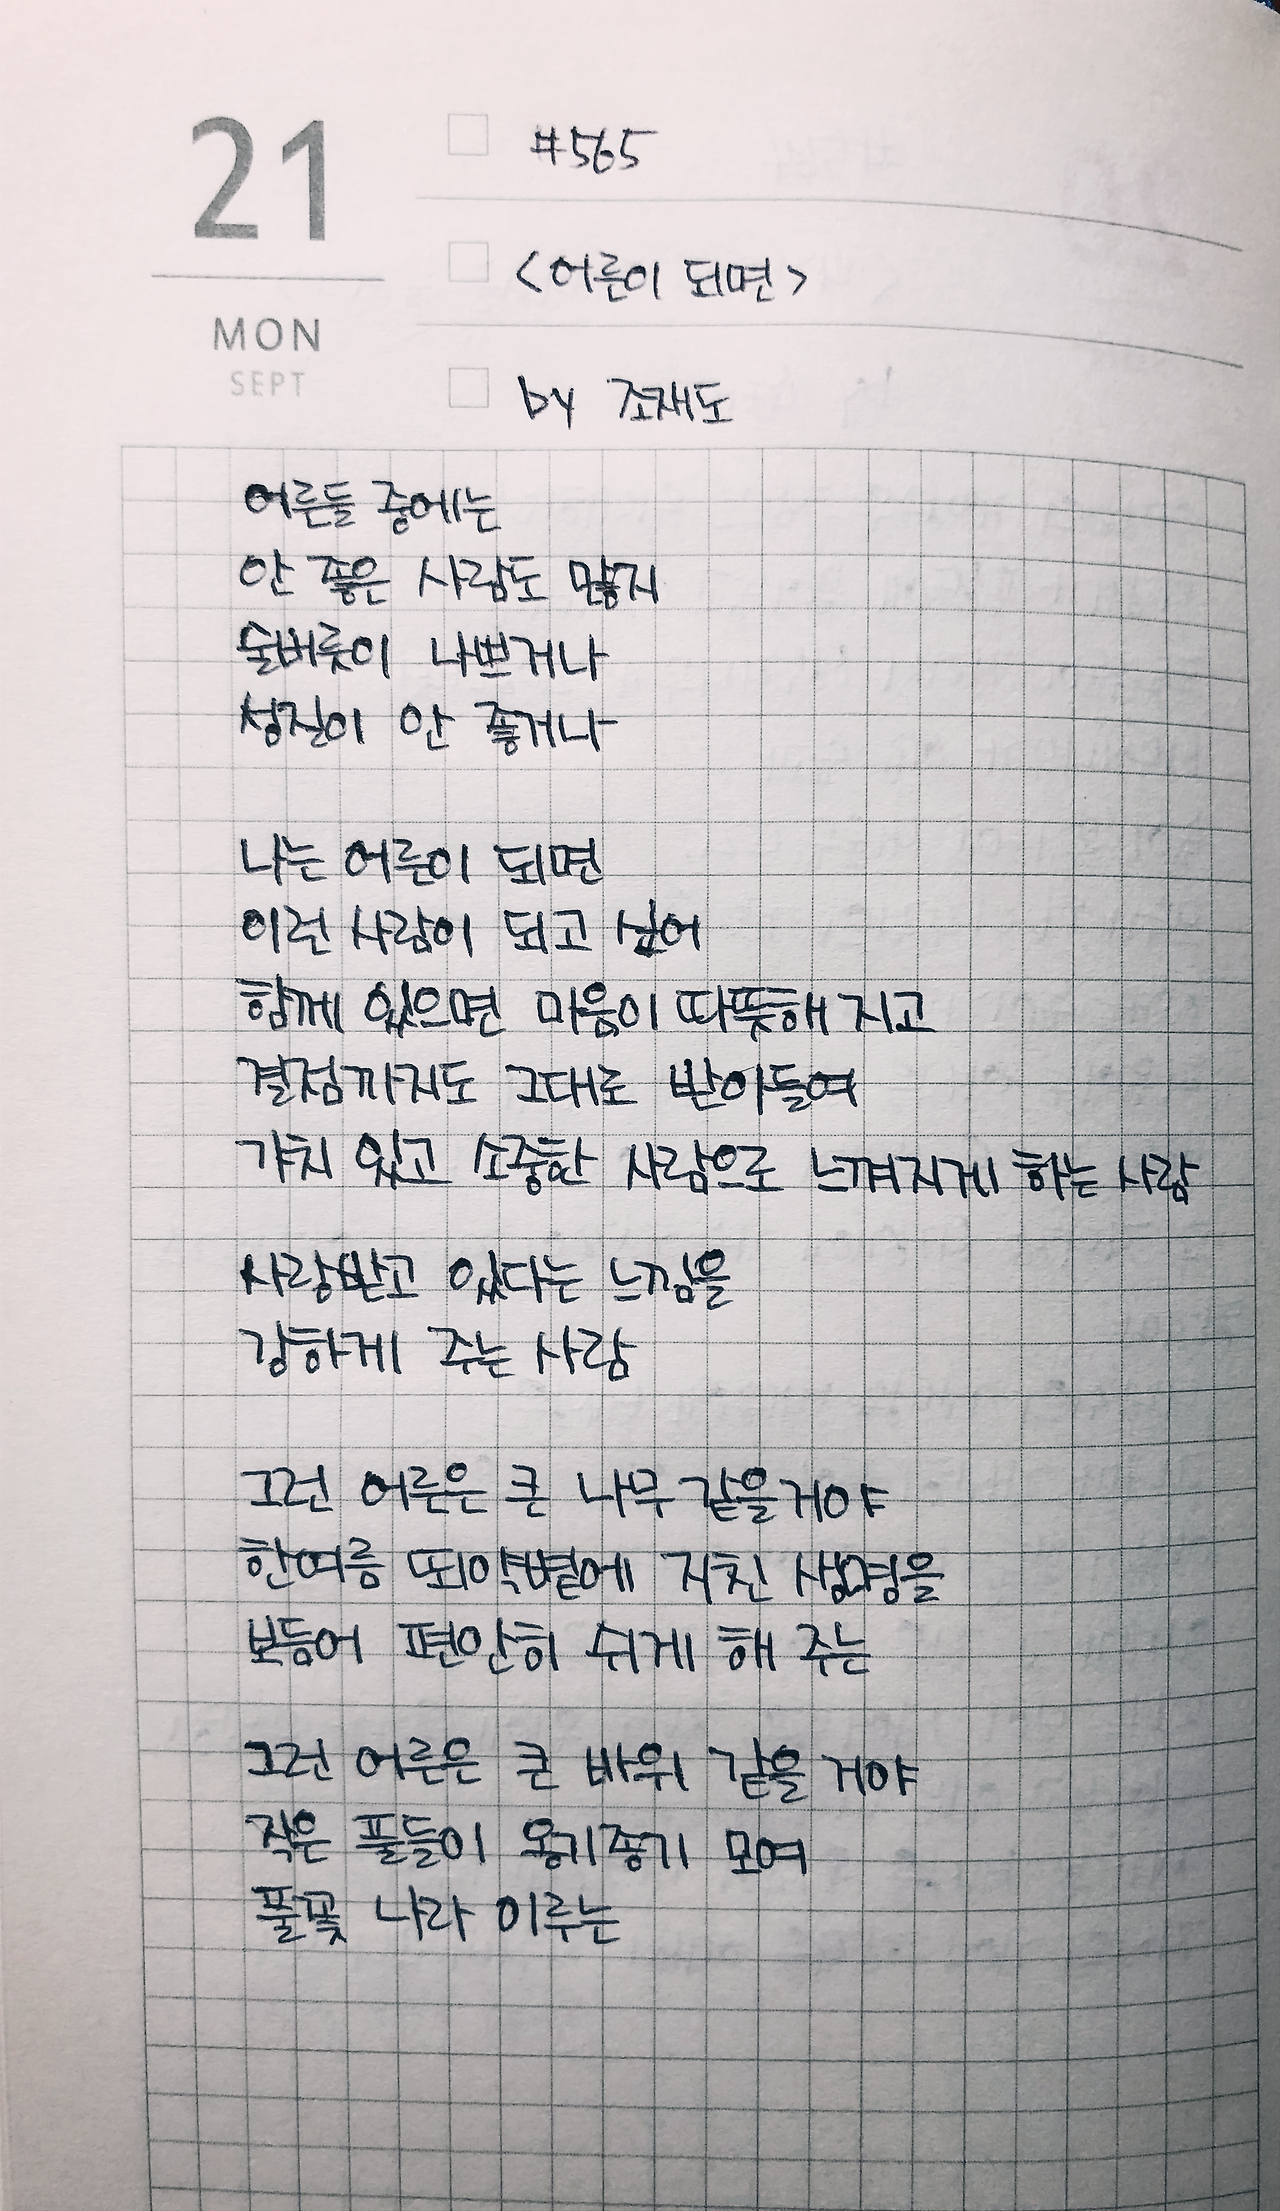 21
MON
SEPT
#565
<어른이 되면>
by 조재도
어른들 중에는
안 좋은 사람도 많지
술버릇이 나쁘거나
성질이 안 좋거나
나는 어른이 되면
이런 사람이 되고 싶어
함께 있으면 마음이 따뜻해 지고
결점까지도 그대로 받아들여
가치 있고 소중한 사람으로 느껴지게 하는 사람
사랑받고 있다는 느낌을
강하게 주는 사람
그런 어른은 큰 나무 같을거야
한여름 뙤약볕에 지친 생명을
보듬어 편안히 쉬게 해 주는
그런 어른은 큰 바위 같을 거야
작은 풀들이 옹기종기 모여
풀꽃 나라 이루는